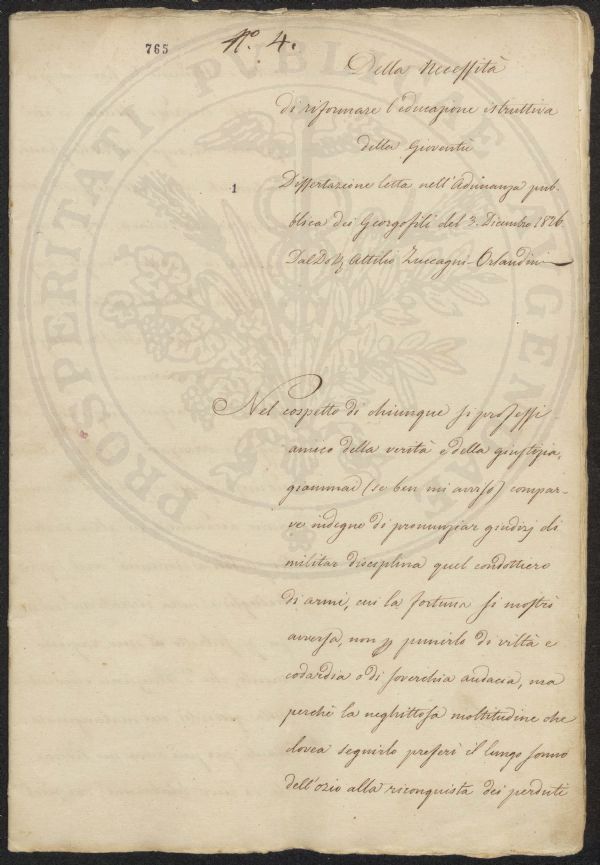 765
N.º 4.
Della Necessità
di riformare l'educazione istruttiva
della Gioventù
1
Dissertazione letta nell'Adunanza pub-
blica dei Georgofili del 3. Dicembre 1826.
Dal Dott. Attilio Zuccagni-Orlandini
Nel cospetto di chiunque si professi
amico della verità e della giustizia,
giammai (se ben mi avviso) compar-
ve indegno di pronunziar giudizj di
militar disciplina quel condottiero
di armi, cui la fortuna si mostrò
avversa, non per punirlo di viltà e
codardia o di soverchia audacia, ma
perchè la neghittosa moltitudine che
dovea seguirlo preferì il lungo sonno
dell'ozio alla riconquista dei perduti
PROSPERITATI PUBLICAE AUGENDAE